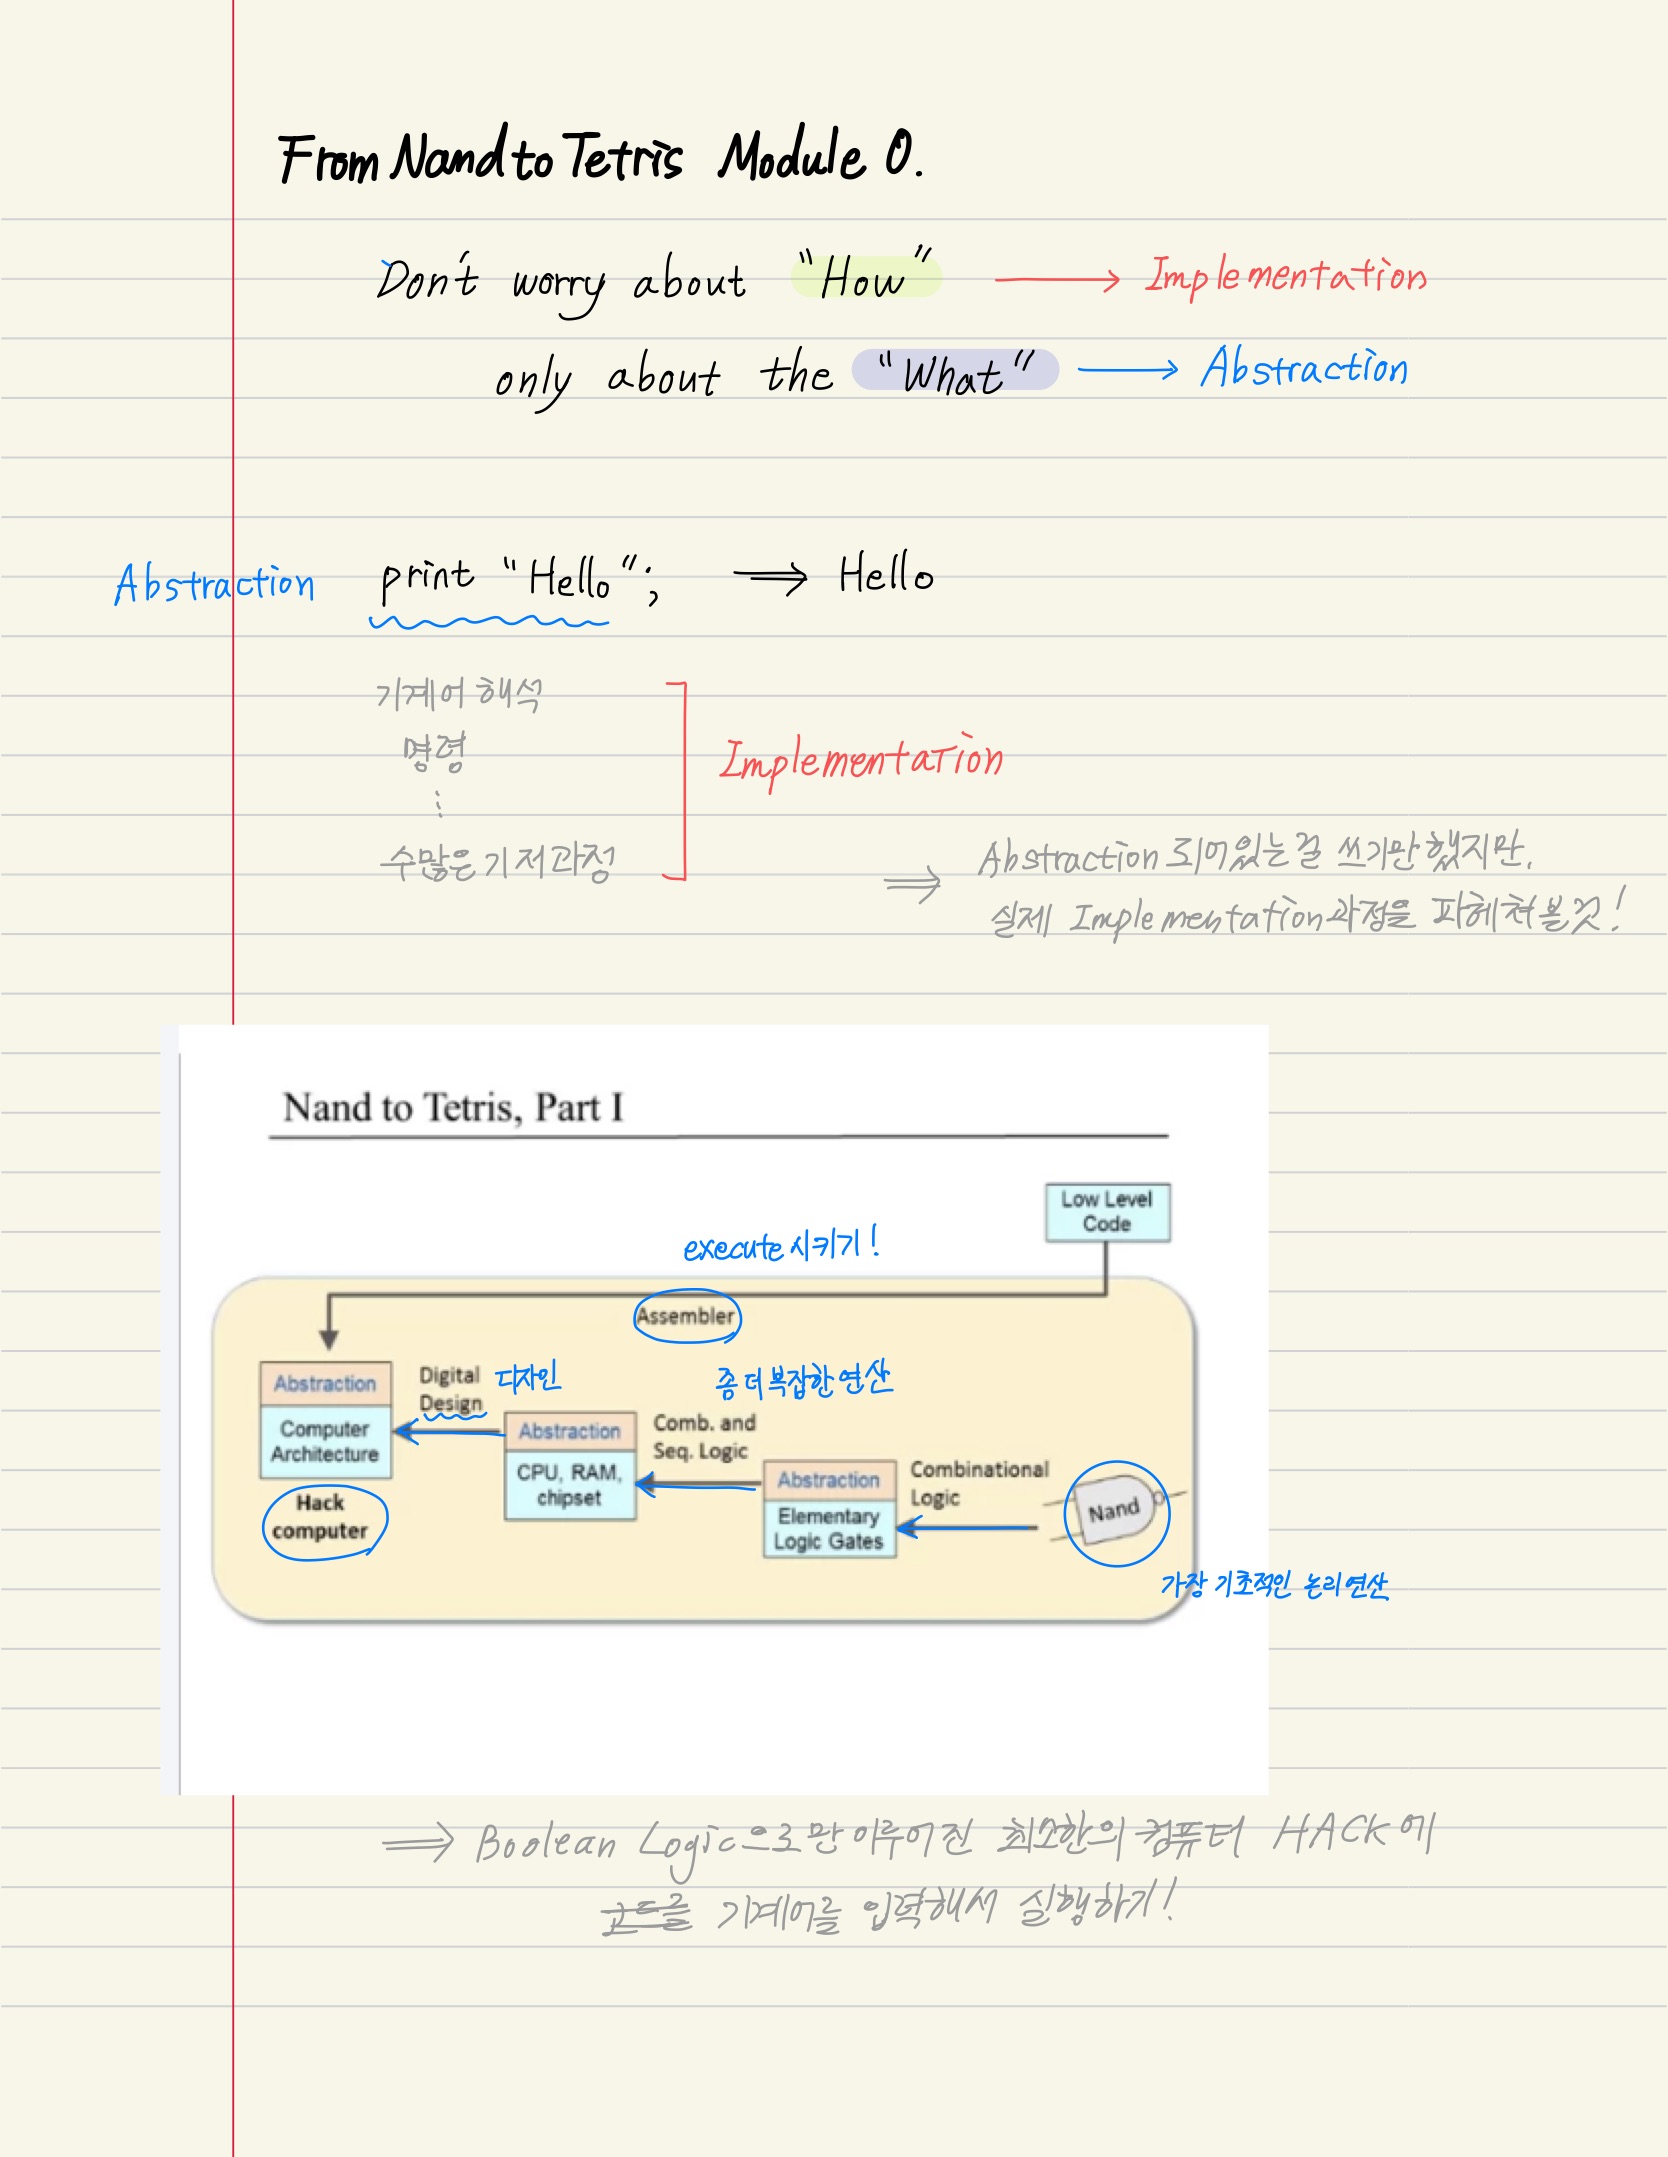 From Nand to Tetris Module 0.
Don't worry about "How" → Implementation
only about the "What" → Abstraction
Abstraction print "Hello"; ⇒ Hello
기계어 해석
명령
⋮
Implementation
수많은 기저과정
⇒ Abstraction 되어있는 걸 쓰기만 했지만,
실제 Implementation 과정을 파헤쳐 볼 것!
Nand to Tetris, Part I
Low Level
Code
execute 시키기!
Assembler
Abstraction
Computer
Architecture
Hack
computer
Digital
Design
디자인
Abstraction
CPU, RAM,
chipset
좀 더 복잡한 연산
Comb. and
Seq. Logic
Abstraction
Elementary
Logic Gates
Combinational
Logic
Nand
가장 기초적인 논리연산
⇒ Boolean Logic으로만 이루어진 최소한의 컴퓨터 HACK에
코드를 기계어를 입력해서 실행하기!